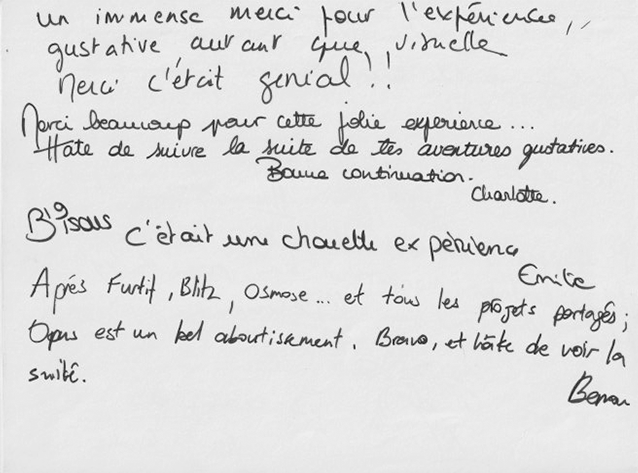 un immense merci pour l'expérience,,
gustative autant que, visuelle
Merci c'était genial!!
Merci beaucoup pour cette jolie experience...
Hâte de suivre la suite de tes aventures gustatives.
Bonne continuation.
Charlotte.
Bisous c'était une chouette expérience
Emilie
Après Furtif, Blitz, Osmose... et tous les projets partagés;
Opus est un bel aboutissement. Bravo, et hâte de voir la
suite.